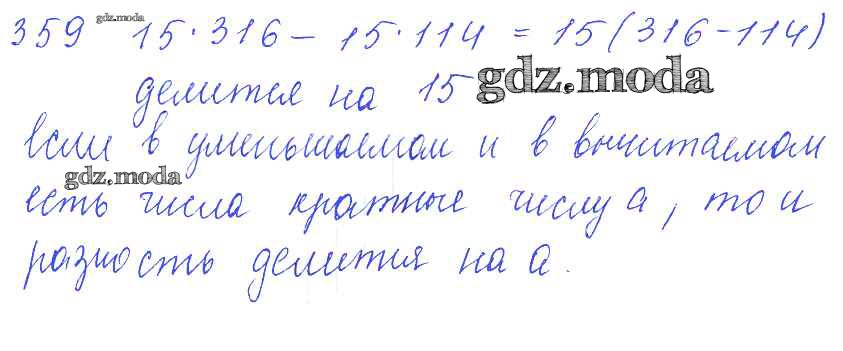 359 gdz.moda 15·316 – 15·114 = 15(316-114)
делится на 15 gdz.moda
если в уменьшаемом и в вычитаемом
gdz.moda
есть числа кратные числу а, то и
разность делится на а.